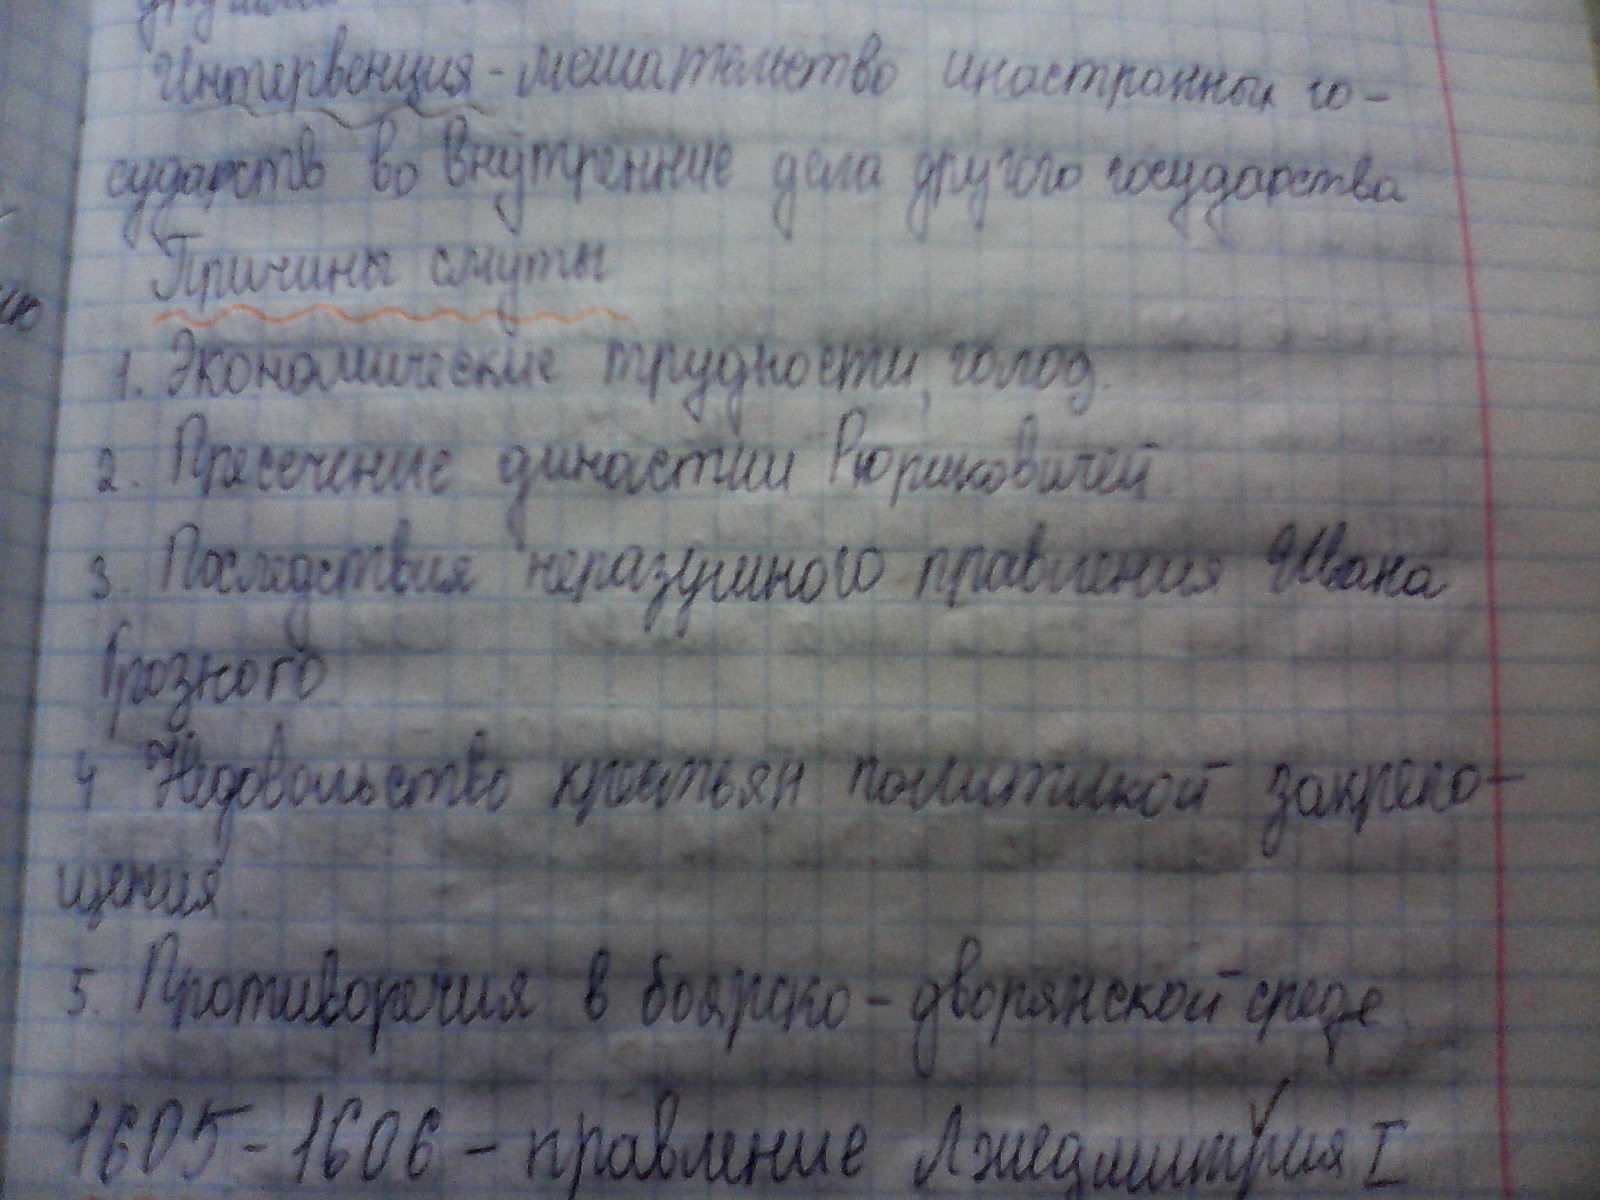 Интервенция - мешательство иностранных го-
сударств во внутренние дела другого государства
Причины смуты
1. Экономические трудности, голод.
2. Пресечение династии Рюриковичей
3. Последствия неразумного правления Ивана
Грозного
4 Недовольство крестьян политикой закрепо-
щения.
5. Противоречия в боярско-дворянской среде.
1605-1606 - правление Лжедмитрия I